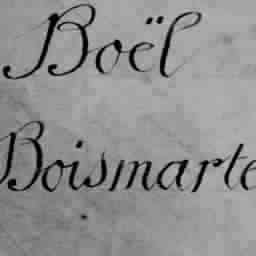 Boël
Boismarte